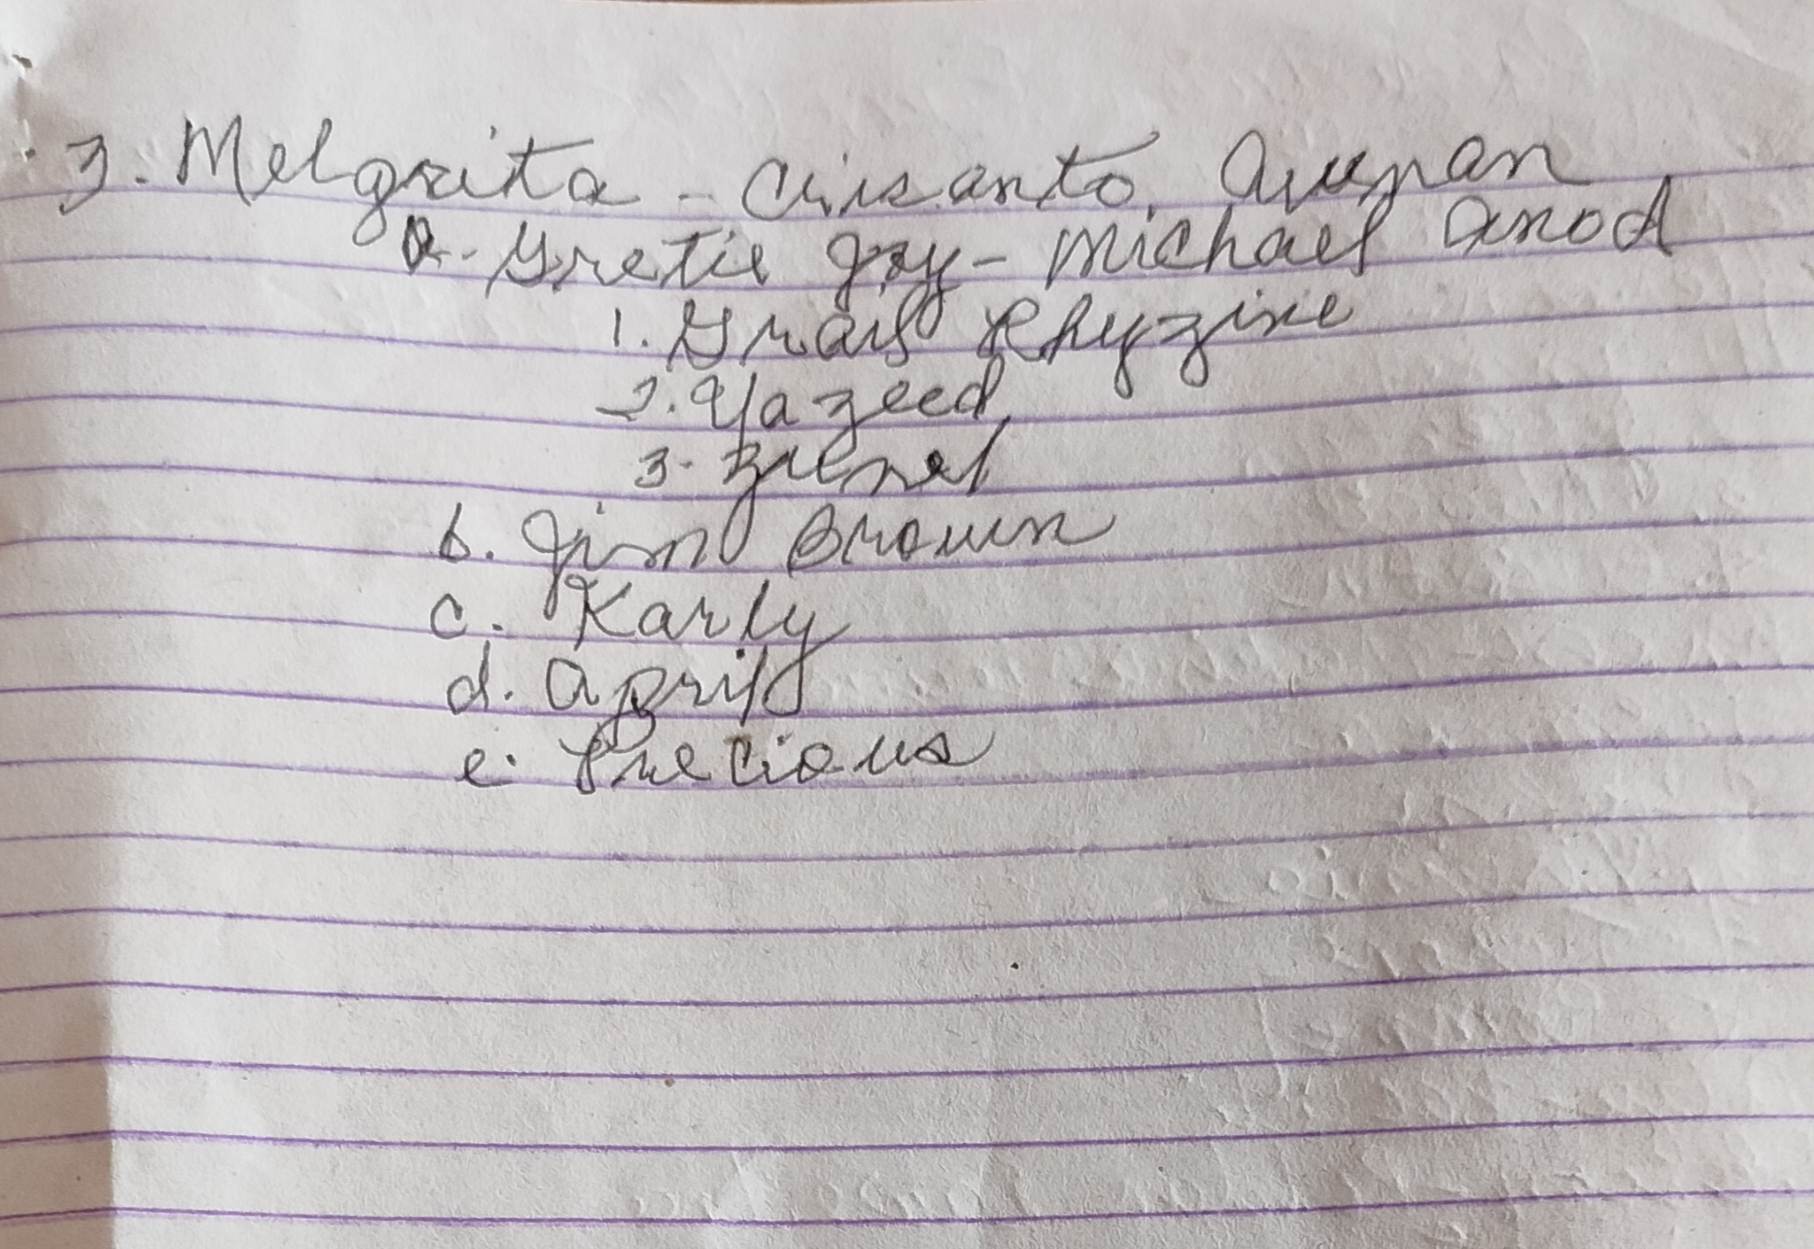 3. Melgrita - Crisanto Avenan
a. Gretie Joy - Michael Anod
1. Rhyzine
2. Yazeed
3.
b. Jim Brown
c. Karly
d. April
e. Precious